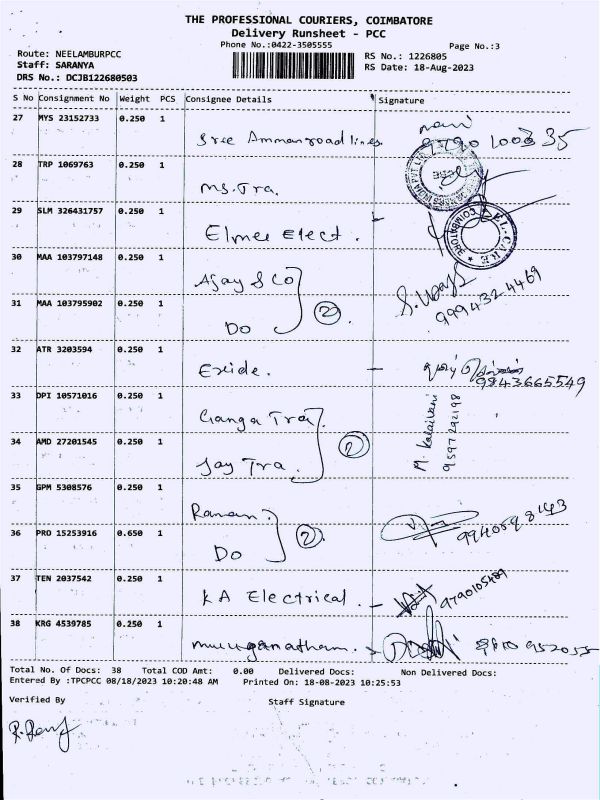 THE PROFESSIONAL COURIERS, COIMBATORE
Delivery Runsheet - PCC
Phone No.:0422-3505555
Page No.:3
Route: NEELAMBURPCC
Staff: SARANYA
DRS No.: DCJB122680503
RS No.: 1226805
RS Date: 18-Aug-2023
S No Consignment No Weight PCS Consignee Details Signature
27 MYS 23152733 0.250 1 Sree Ammanroad lines
28 TRP 1069763 0.250 1 Ms. Tra.
29 SLM 326431757 0.250 1 Elmee Elect.
30 MAA 103797148 0.250 1 Ajay & Co
31 MAA 103795902 0.250 1 Do 2 9994324469
32 ATR 3203594 0.250 1 Exide. - 9843665549
33 DPI 10571016 0.250 1 Ganga Tra. M. Kalaivani
34 AMD 27201545 0.250 1 Jay Tra. 2 9597292198
35 GPM 5308576 0.250 1 Raman.
36 PRO 15253916 0.650 1 Do 2
37 TEN 2037542 0.250 1 KA Electrical. - 9790105489
38 KRG 4539785 0.250 1 Muruganatham.
Total No. Of Docs: 38 Total COD Amt: 0.00 Delivered Docs: Non Delivered Docs:
Entered By :TPCPCC 08/18/2023 10:20:48 AM Printed On: 18-08-2023 10:25:53
Verified By Staff Signature